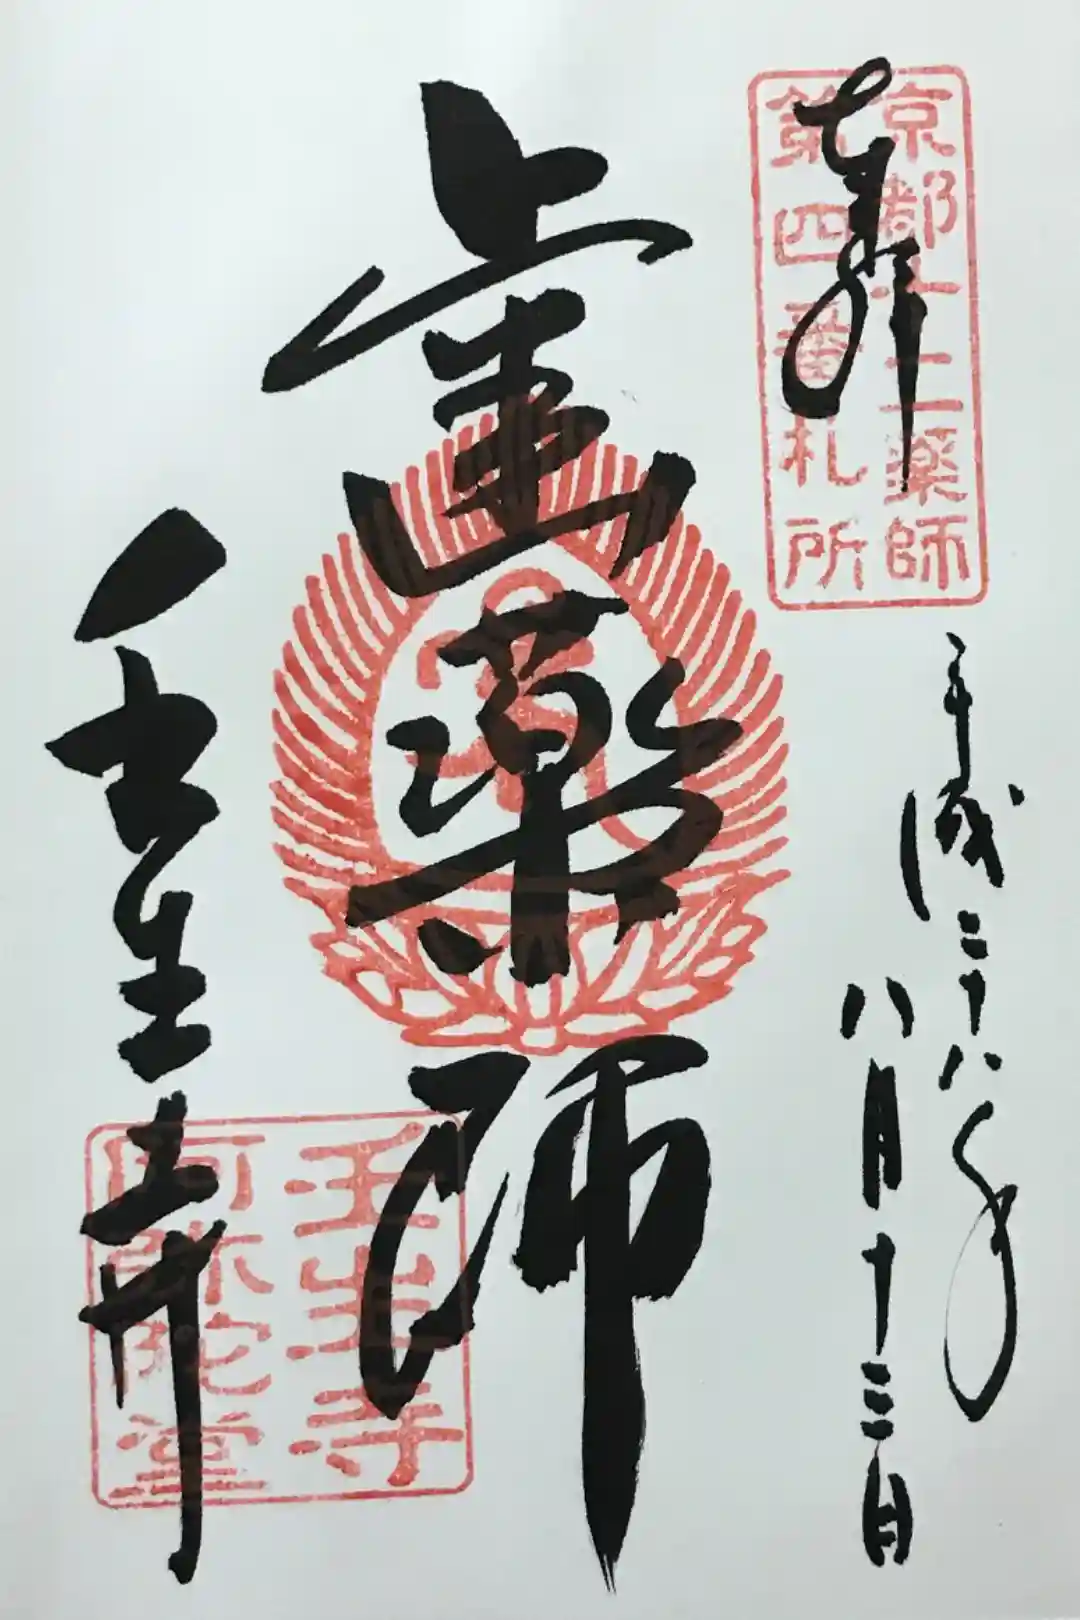 奉拝
京都十二薬師
第四番札所
平成二十八年
八月十三日
歯薬師
壬生寺
壬生寺
阿弥陀堂